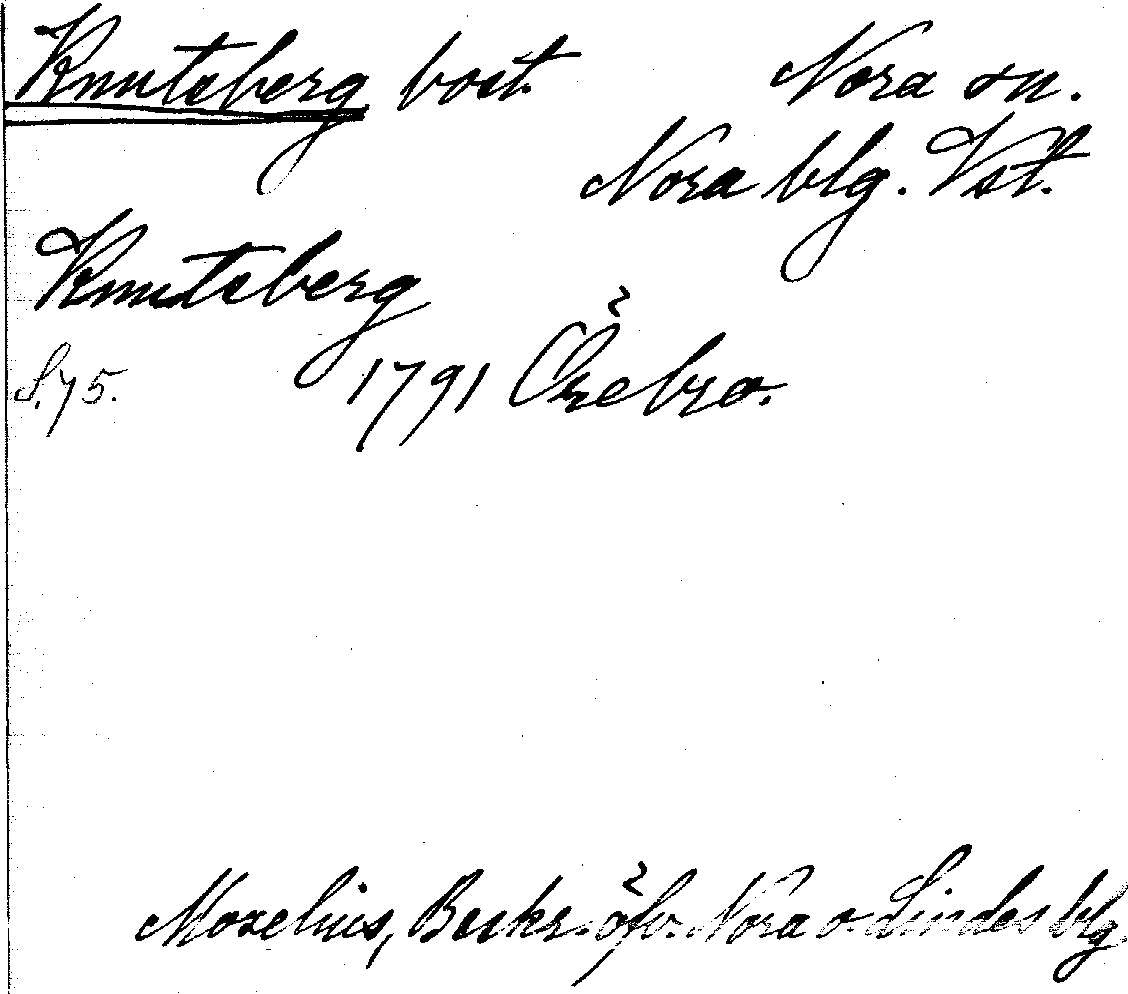 Knutsberg bost. Nora sn.
Nora blg. Vstl.
Knutsberg
S. 75. 1791 Örebro.
Moxelius, Beskr. öfv. Nora o. Lindes blg